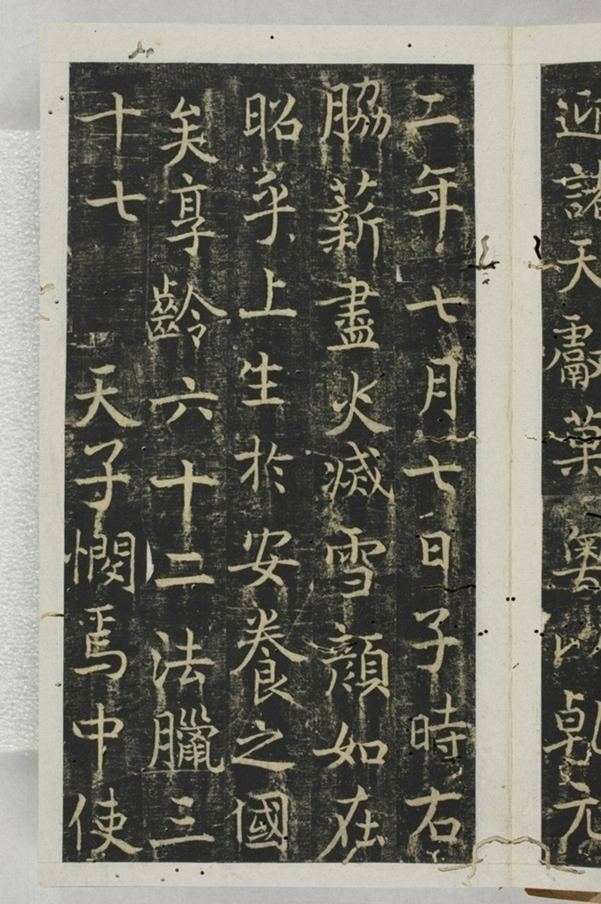 迎諸天獻菓粵以乾元
二年七月七日子時右
脇薪盡火滅雪顏如在
昭乎上生於安養之國
矣享齡六十二法臘三
十七 天子憫焉中使